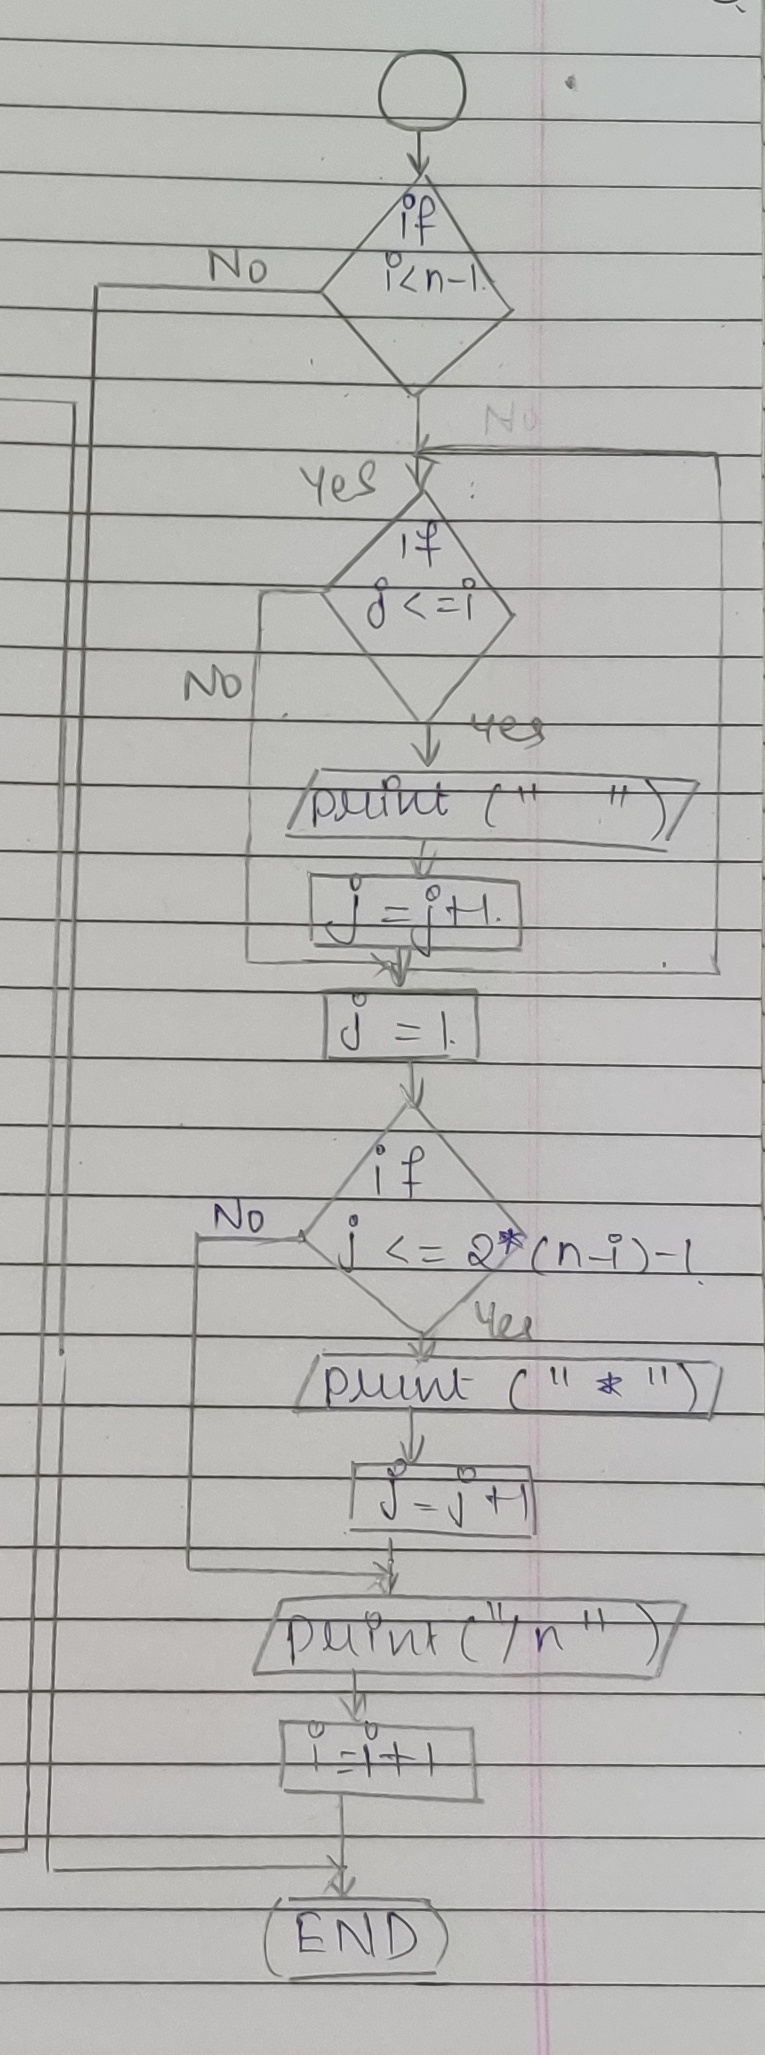 if
No
i<n-1.
No
Yes
if
j<=i
No
yes
print (" ")
j=j+1.
j=1.
if
No
j <= 2*(n-i)-1.
Yes
print ("*")
j=j+1
print("/n")
i=i+1
END